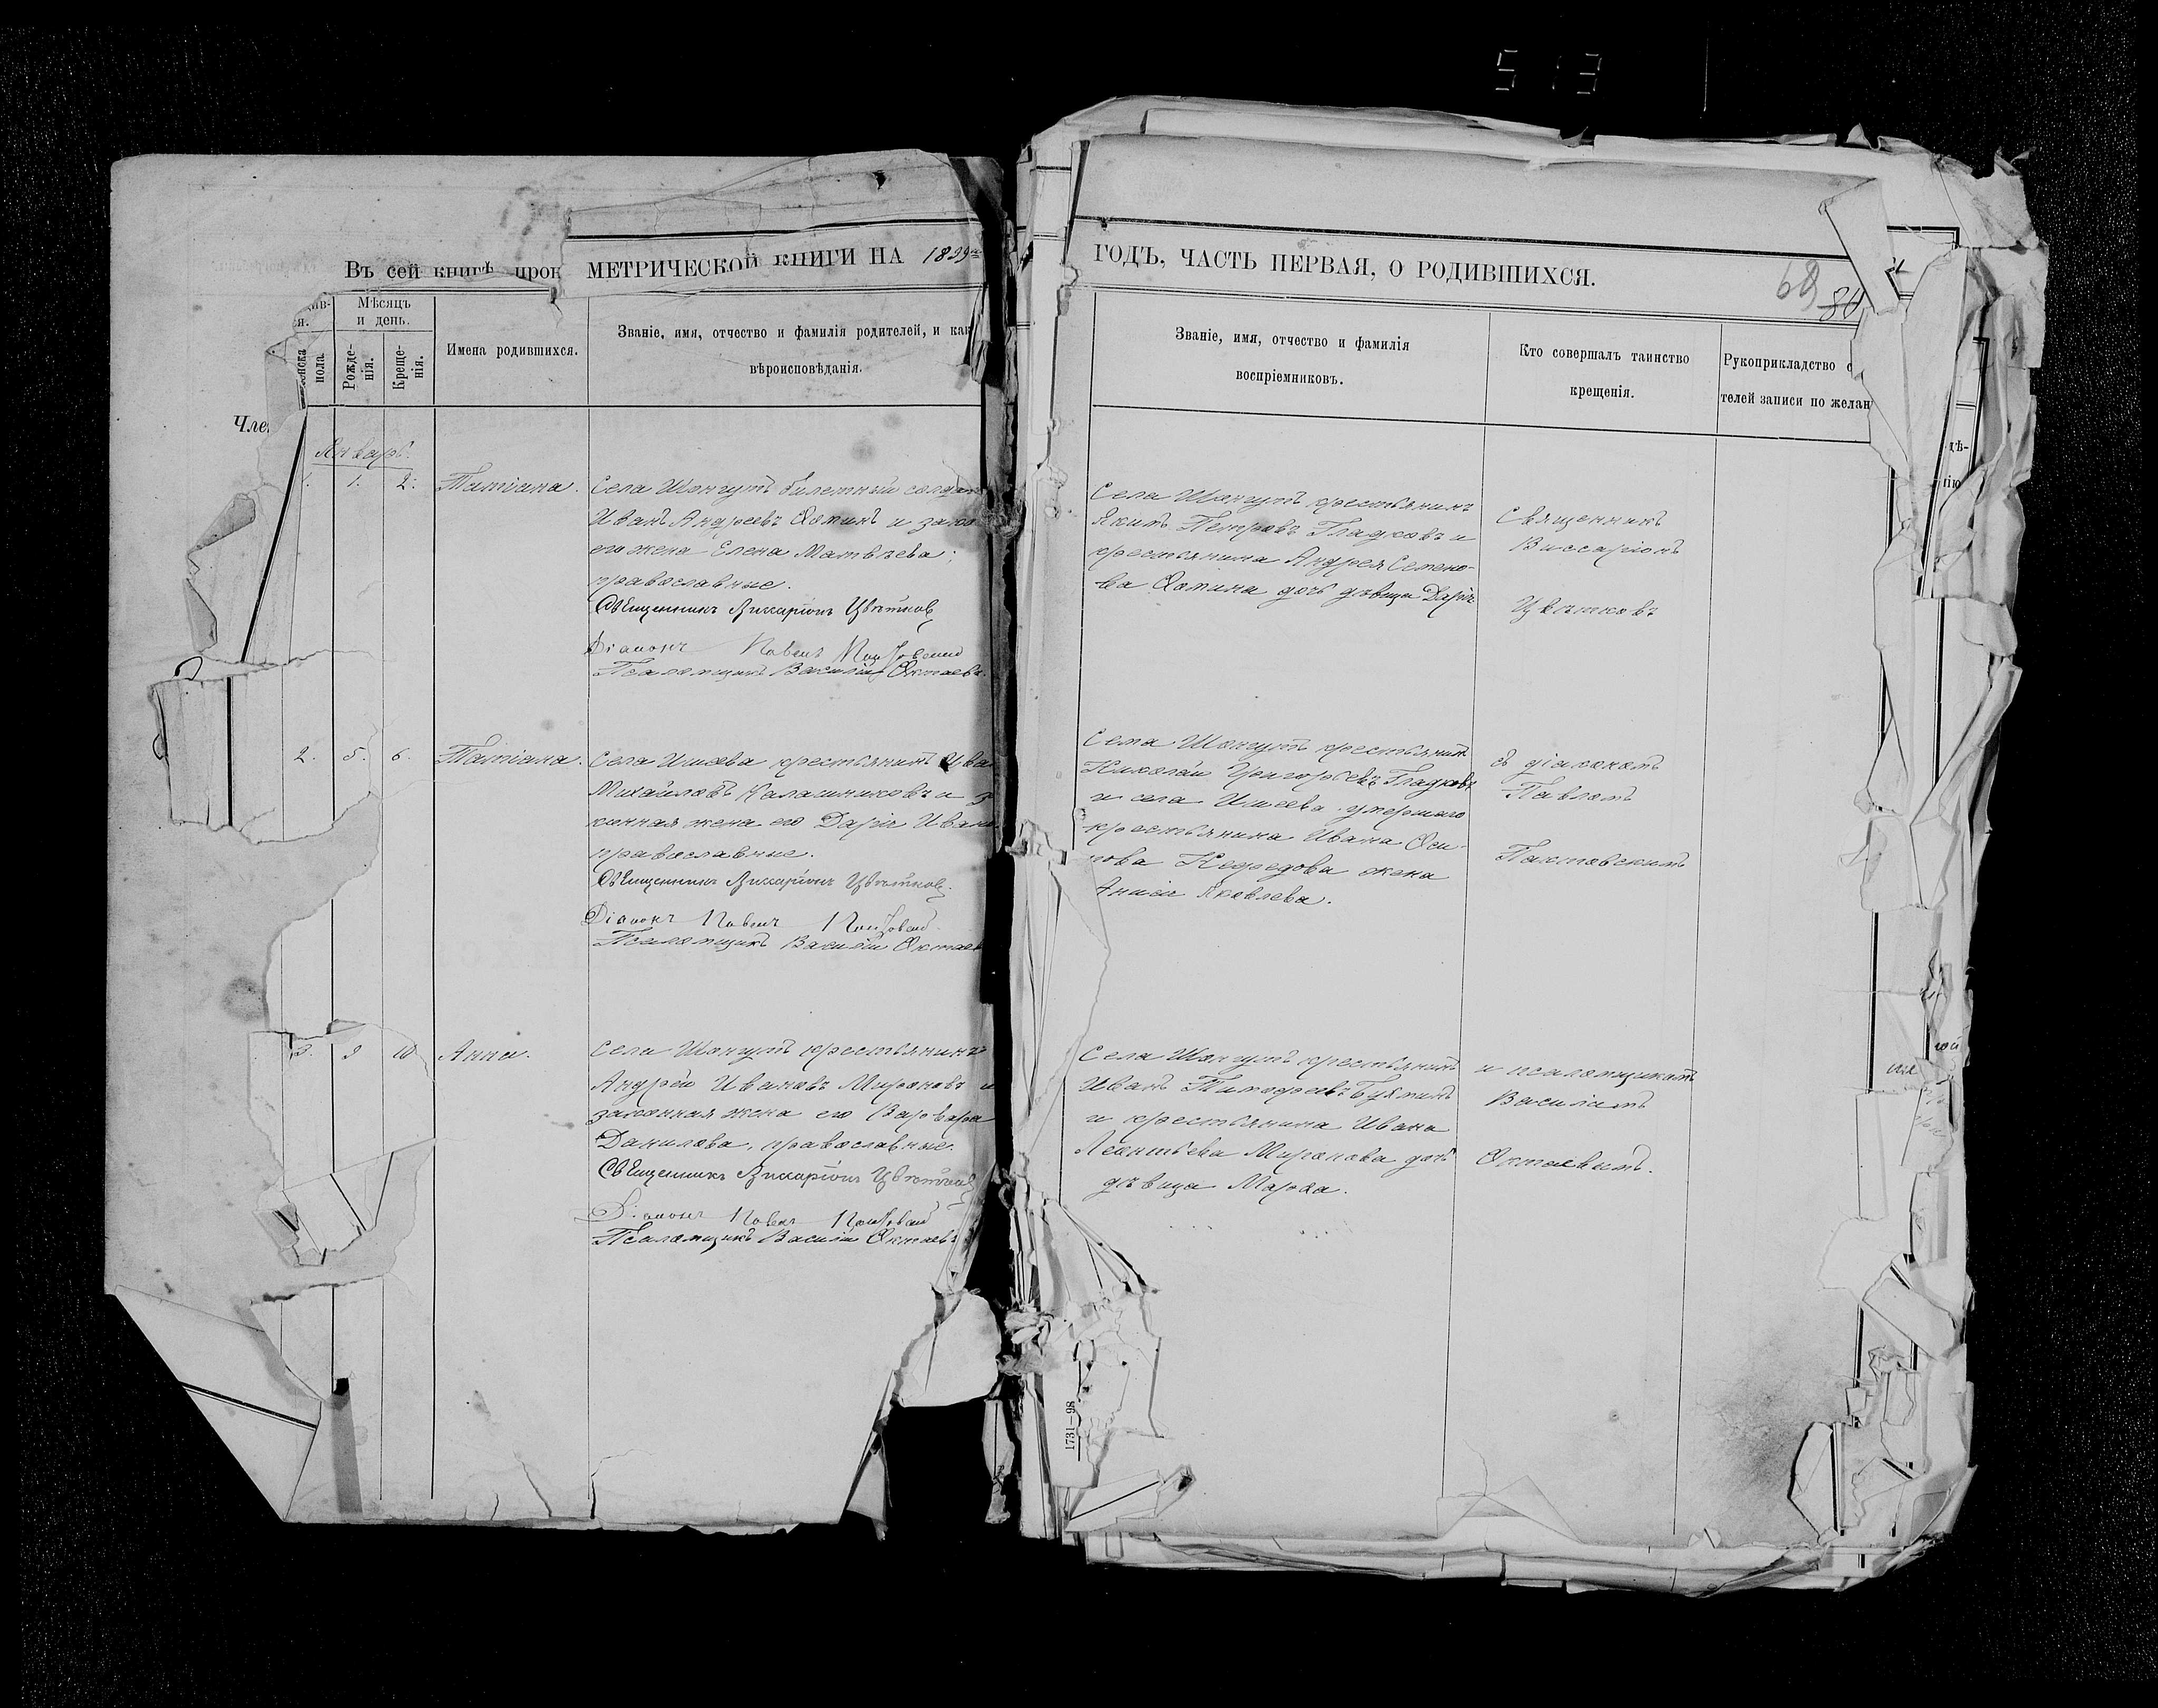 513
Въ сей книгѣ прон
МЕТРИЧЕСКОЙ КНИГИ НА 1899
ГОДЪ, ЧАСТЬ ПЕРВАЯ, О РОДИВШИХСЯ.
69
80
Мѣсяцъ и день.
пола.
Рожде-нія.
Креще-нія.
Имена родившихся.
Званіе, имя, отчество и фамилія родителей, и как
вѣроисповѣданія.
Званіе, имя, отчество и фамилія
воспріемниковъ.
Кто совершалъ таинство
крещенія.
Рукоприкладство с
телей записи по желан
Чле
Январь.
1. 1. 2. Татіана.
Села Шонгутъ билетный солдат
Иванъ Андреевъ Ѳоминъ и зако
его жена Елена Матвѣева;
православные.
Священникъ Виссаріонъ Цвѣтковъ
Діаконъ Павелъ
Псаломщикъ Василій Октаевъ.
Села Шонгутъ крестьянинъ
Якимъ Петровъ Гладковъ и
крестьянина Андрея Семено-
ва Ѳомина дочь дѣвица Дарія
Священникъ
Виссаріонъ
Цвѣтковъ
2. 5. 6. Татіана.
Села Ишеева крестьянинъ Ива
Михайловъ Калашниковъ и з
конная жена его Дарія Ивано
православные.
Священникъ Виссаріонъ Цвѣтковъ.
Діаконъ Павелъ
Псаломщикъ Василій Октаев
Села Шонгутъ крестьянинъ
Николай Григорьевъ Гладковъ
и села Ишеева умершаго
крестьянина Ивана Оси-
пова жена
Яковлева.
съ діакономъ
Павломъ
3. 9 10 Анна.
Села Шонгутъ крестьянинъ
Андрей Ивановъ Мироновъ и
законная жена его Варвара
Данилова, православные.
Священникъ Виссаріонъ Цвѣтковъ
Діаконъ Павелъ
Псаломщикъ Василій Октаевъ
Села Шонгутъ крестьянинъ
Иванъ Тимофеевъ
и крестьянина Ивана
Леонтьева Миронова дочь
дѣвица Марѳа.
и псаломщикомъ
Василіемъ
Октаевымъ.
1731—98